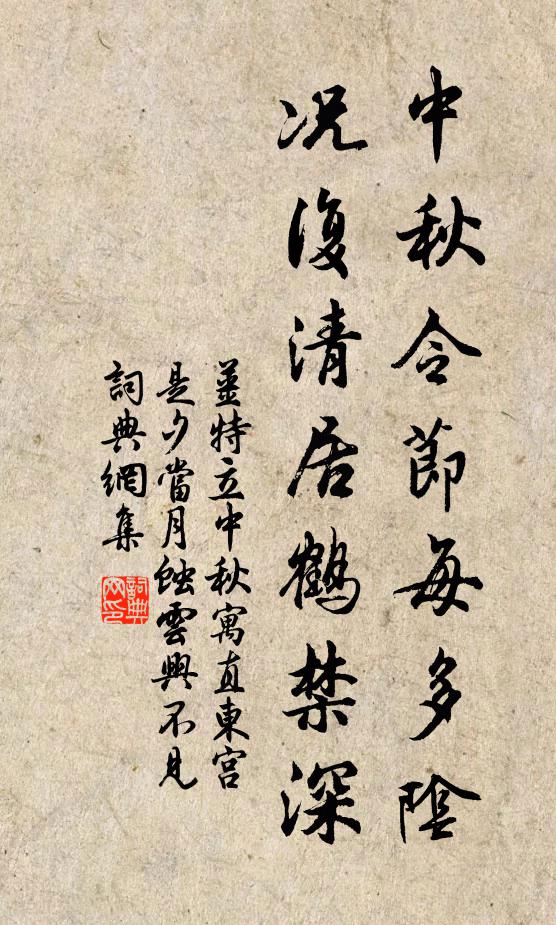 中秋令節每多陰
况復清居鶴禁深
薑特立中秋寓直東宮
是夕當月蝕雲興不見
詞典網集
詞典
网印